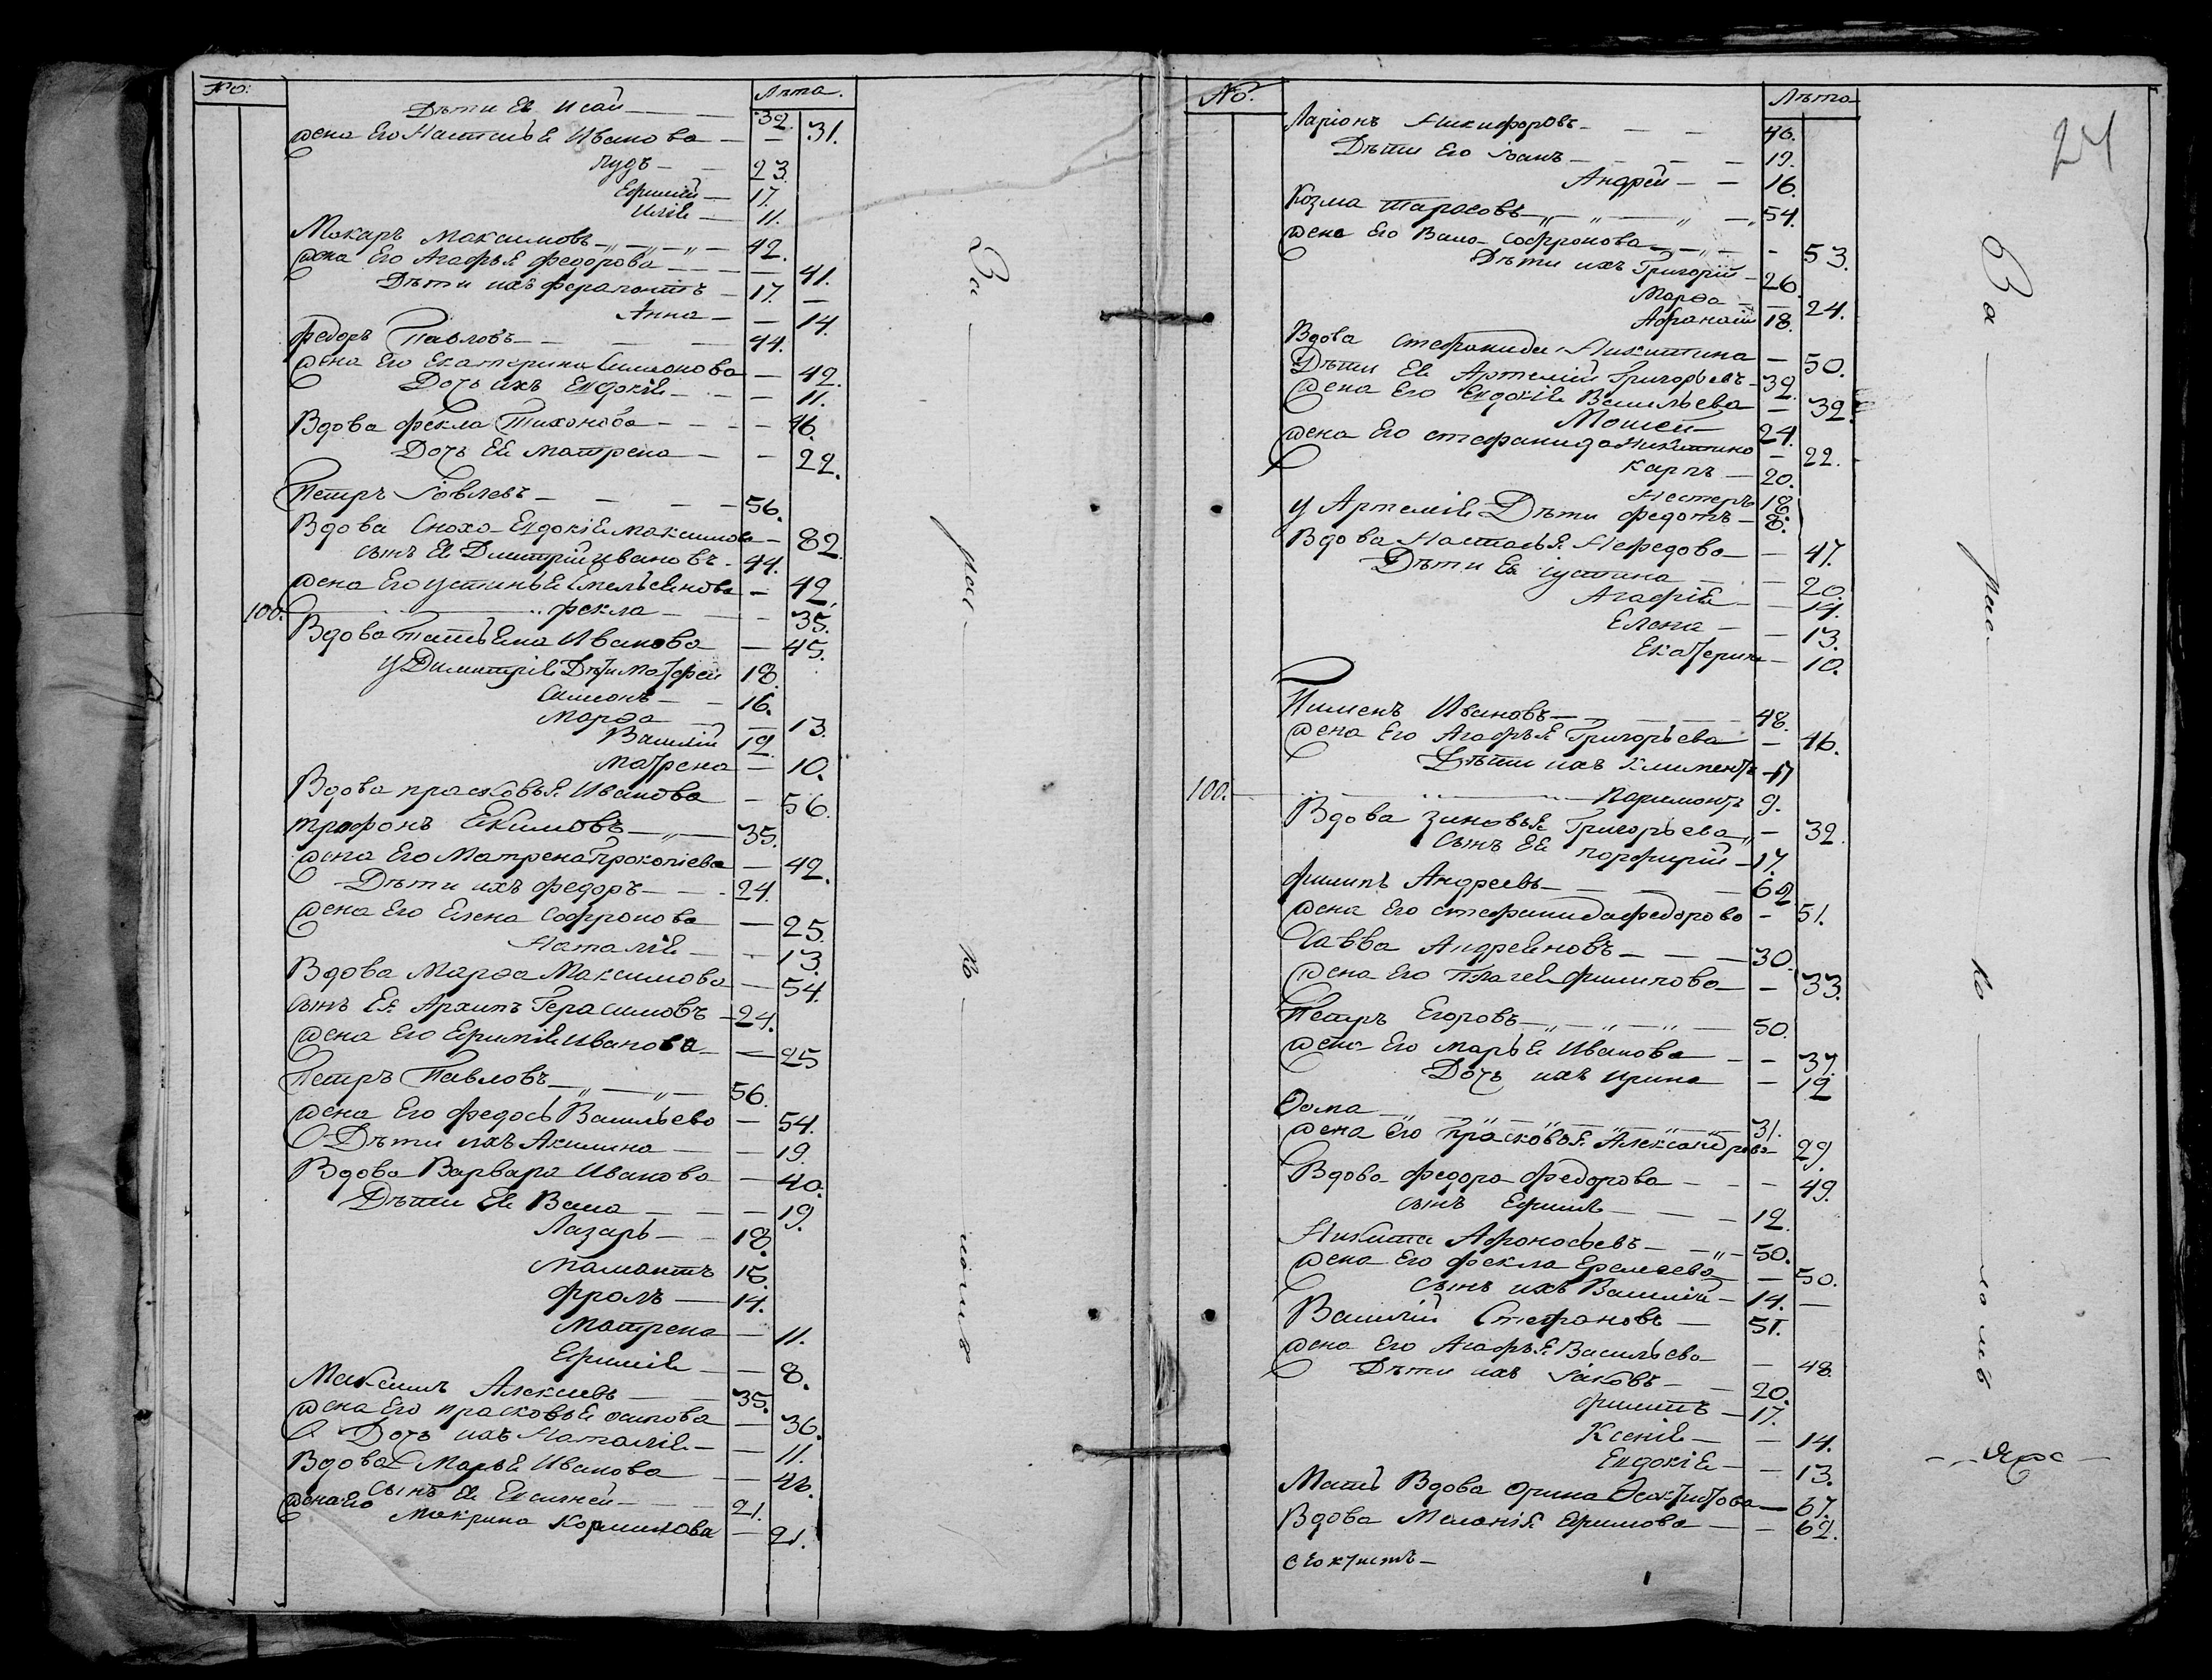 №: Лѣта.
Дѣти Ея Исай — 32.
Жена Его Настасья Иванова — 31.
Іудъ — 23.
Ефимей — 17.
Илія — 11.
Макаръ Максимовъ — 42.
Жена Его Агафья Федорова — 41.
Дѣти ихъ Ферапонтъ — 17. —
Анна — 14.
Федоръ Павловъ — 44.
Жена Его Екатерина Симонова — 42.
Дочь ихъ Евдокія — 11.
Вдова Фекла Тихонова — 46.
Дочь Ея Матрена — 22.
Петръ Іовлевъ — 56.
Вдова Сноха Евдокія Максимова — 82.
сынъ Ея Дмитрій Ивановъ — 44.
Жена Его Устинья Емельянова — 42.
100. Фекла — 35.
Вдова Татьяна Иванова — 45.
У Димитрія Дѣти Матфей 18.
Симонъ — 16.
Марѳа — 13.
Василій 12.
Матрена — 10.
Вдова Прасковья Иванова — 56.
Трифонъ Екимовъ — 35.
Жена Его Матрена Прокопіева — 42.
Дѣти ихъ Федоръ — 24.
Жена Его Елена Софронова — 25.
Наталія — 13.
Вдова Марѳа Максимова — 54.
сынъ Ея Архипъ Герасимовъ — 24.
Жена Его Ефимія Иванова — 25
Петръ Павловъ — 56.
Жена Его Федось Васильева — 54.
Дѣти ихъ Акилина — 19.
Вдова Варвара Иванова — 40.
Дѣти Ея Васа — 19.
Лазарь — 18.
Мамонтъ 15.
Фролъ — 14.
Матрена — 11.
Ефимія — 8.
Максимъ Алексеевъ — 35.
Жена Его Прасковья Осипова — 36.
Дочь ихъ Наталія — 11.
Вдова Марья Иванова — 46.
сынъ Ея Евсигней — 21.
Жена Его Макрина Кормилова — 21.
За — рас — ко — ломъ
№. Лѣта
24
Ларіонъ Никифоровъ — 46.
Дѣти Его Іванъ — 19.
Андрей — 16.
Козма Тарасовъ — 54.
Жена Его Васа Софронова — 53.
Дѣти ихъ Григорій — 26.
Марѳа — 24.
Афанасій 18.
Вдова Стефанида Никитина — 50.
Дѣти Ея Артемій Григорьевъ — 32.
Жена Его Евдокія Васильева — 32.
Мосей — 24.
Жена Его Стефанида Никитина — 22.
Карпъ — 20.
Нестеръ 18.
у Артемія Дѣти Федотъ — 8.
Вдова Настасья Нефедова — 47.
Дѣти Ея Іустина — 20.
Агафія — 14.
Елена — 13.
Екатерина — 10.
Пименъ Ивановъ — 48.
Жена Его Агафья Григорьева — 46.
Дѣти ихъ Климентъ — 17
100. Паримонтъ 9.
Вдова Зиновья Григорьева — 32.
Сынъ Ея Порфирій — 17.
Филипъ Андреевъ — 62.
Жена Его Стефанида Федорова — 51.
Савва Андреяновъ — 30.
Жена Его Пелагея Филипова — 33.
Петръ Егоровъ — 50.
Жена Его Марья Иванова — 37.
Дочь ихъ Ирина — 12
Ѳома — 31.
Жена Его Прасковья Александрова — 29.
Вдова Федора Федорова — 49.
сынъ Ефимъ — 12.
Никита Афонасьевъ — 50.
Жена Его Фекла Еремеева — 50.
Сынъ ихъ Василій — 14. —
Василій Стефановъ — 51.
Жена Его Агафья Васильева — 48.
Дѣти ихъ Іаковъ — 20.
Филипъ — 17.
Ксенія — 14.
Евдокія — 13.
Мать Вдова Орина Ѳеоктистова — 67.
Вдова Меланія Ефимова — 62.
За — рас — ко — ломъ